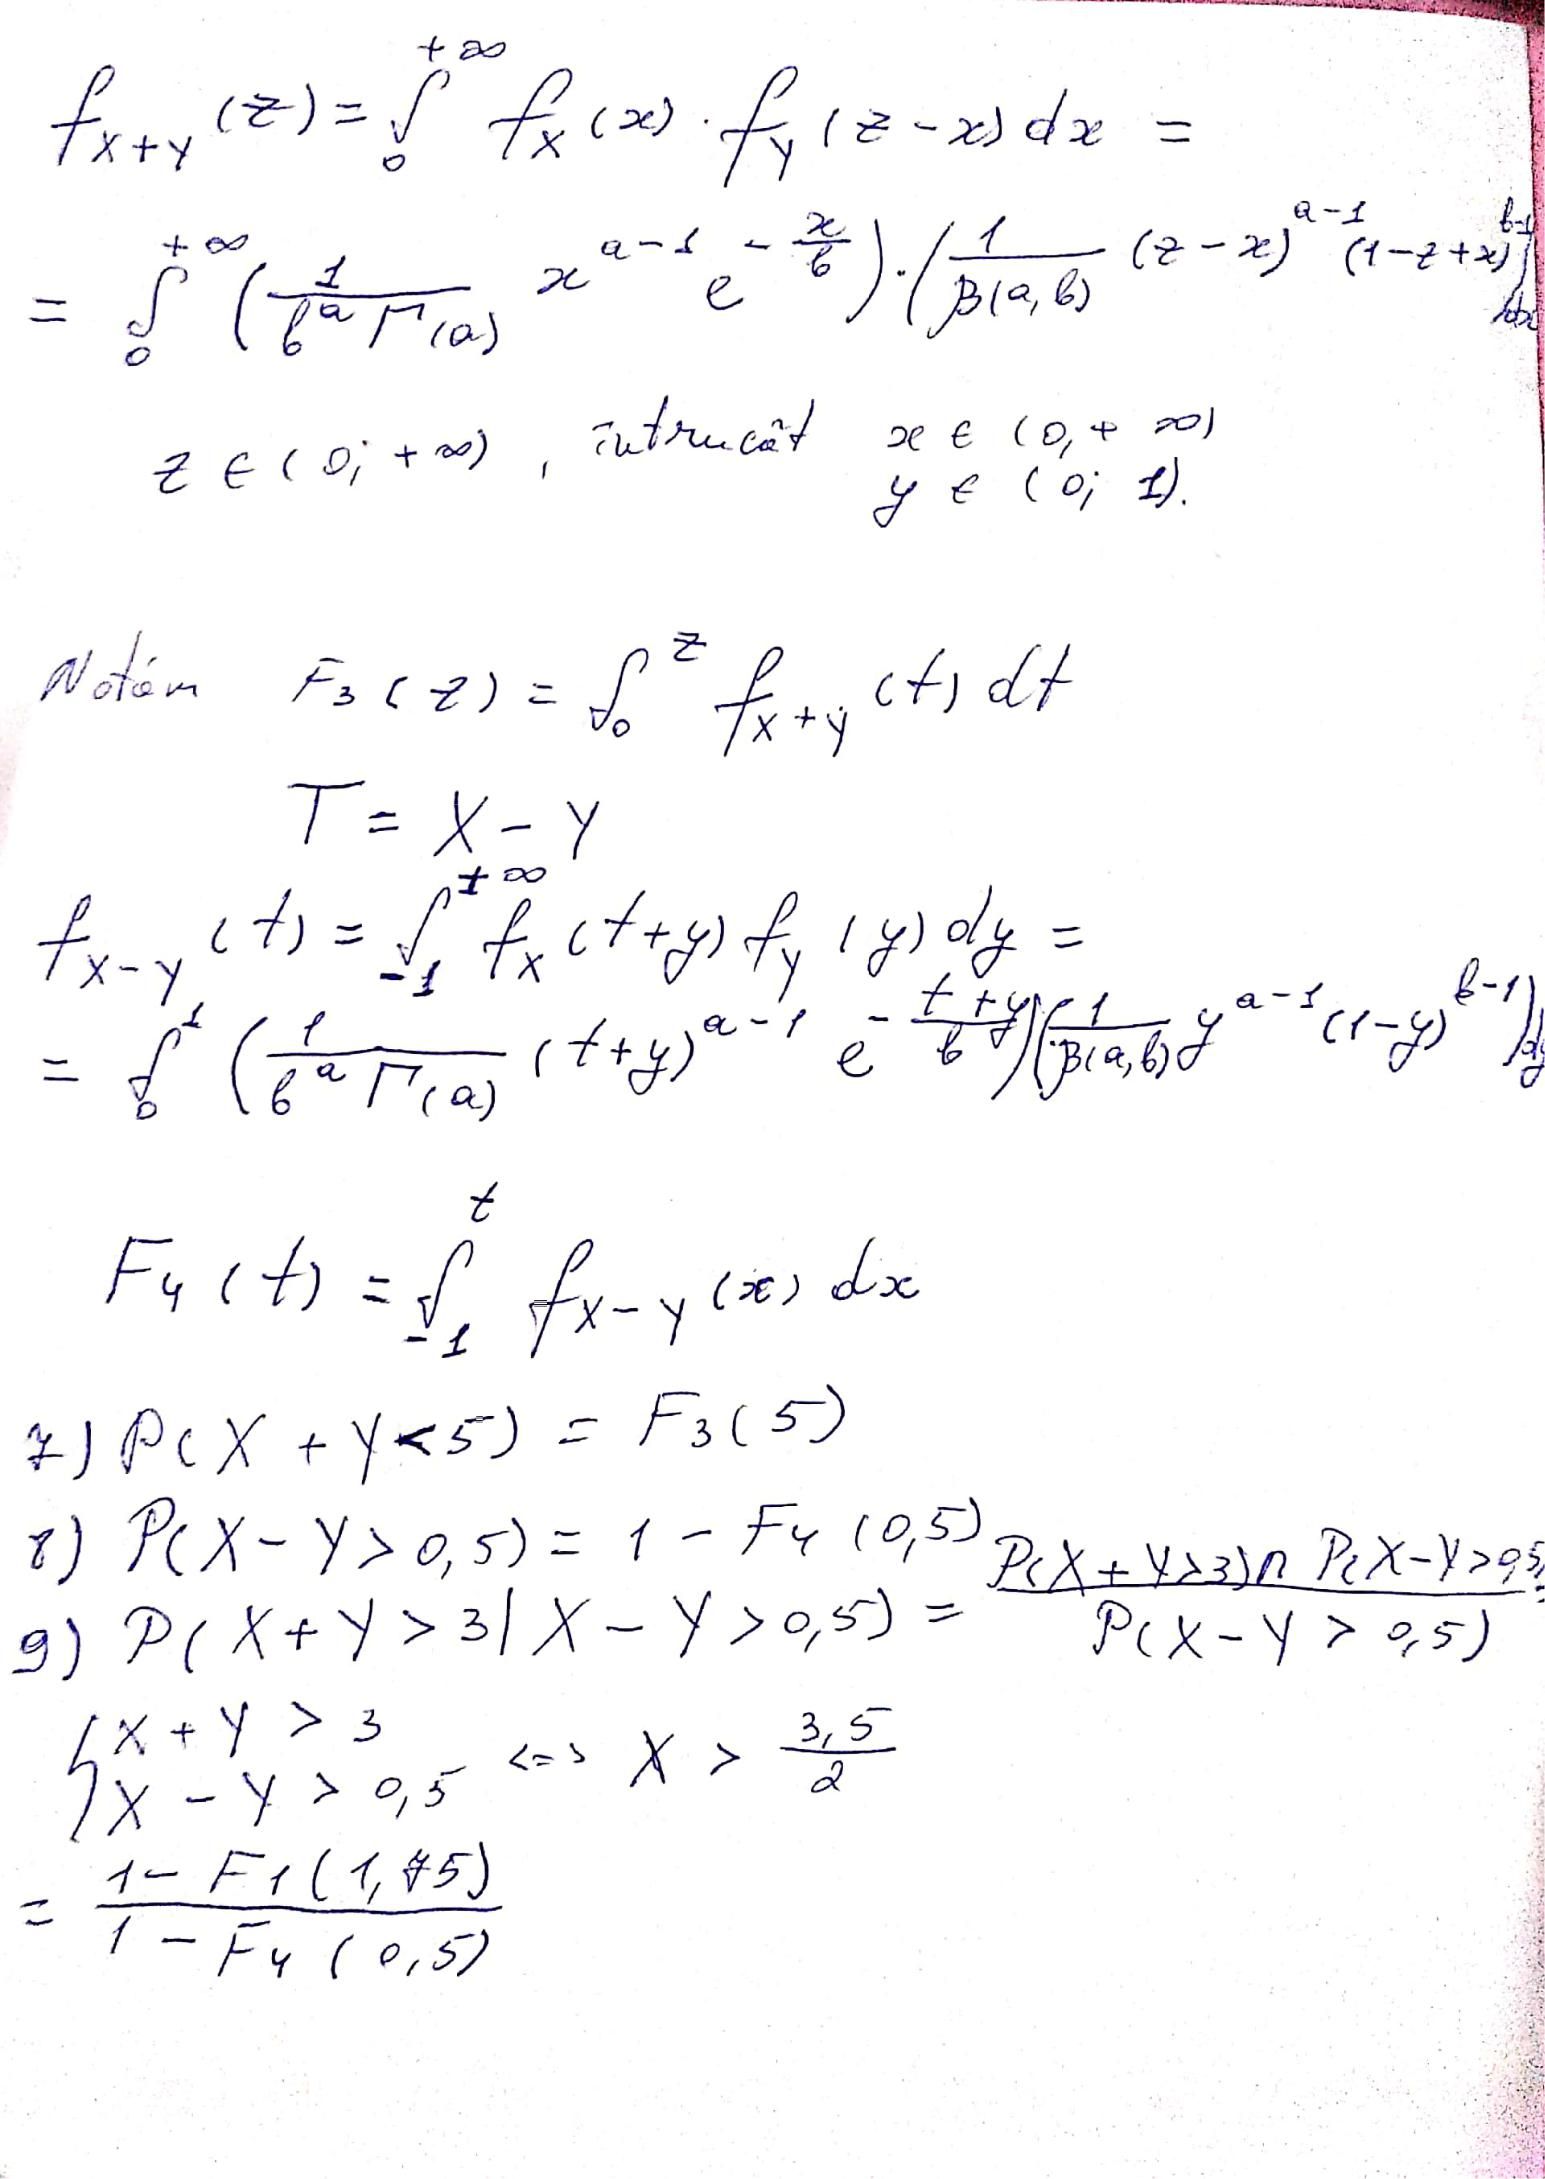 f_{X+Y}(z) = ∫_0^{+∞} f_X(x) · f_Y(z-x) dx =
= ∫_0^{+∞} (1/(b^a Γ(a)) x^{a-1} e^{-x/b}) · (1/(B(a,b)) (z-x)^{a-1} (1-z+x)^{b-1}) dx
z ∈ (0; +∞), întrucât x ∈ (0, +∞)
y ∈ (0; 1).
Notăm F_3(z) = ∫_0^z f_{X+Y}(t) dt
T = X - Y
f_{X-Y}(t) = ∫_{-1}^{+∞} f_X(t+y) f_Y(y) dy =
= ∫_0^1 (1/(b^a Γ(a)) (t+y)^{a-1} e^{-(t+y)/b}) (1/(B(a,b)) y^{a-1} (1-y)^{b-1}) dy
F_4(t) = ∫_{-1}^t f_{X-Y}(x) dx
7) P(X + Y < 5) = F_3(5)
8) P(X - Y > 0,5) = 1 - F_4(0,5)
9) P(X + Y > 3 | X - Y > 0,5) = (P(X + Y > 3) ∩ P(X - Y > 0,5))/(P(X - Y > 0,5)) =
{X + Y > 3
{X - Y > 0,5 <=> X > 3,5/2
= (1 - F_1(1,75))/(1 - F_4(0,5))